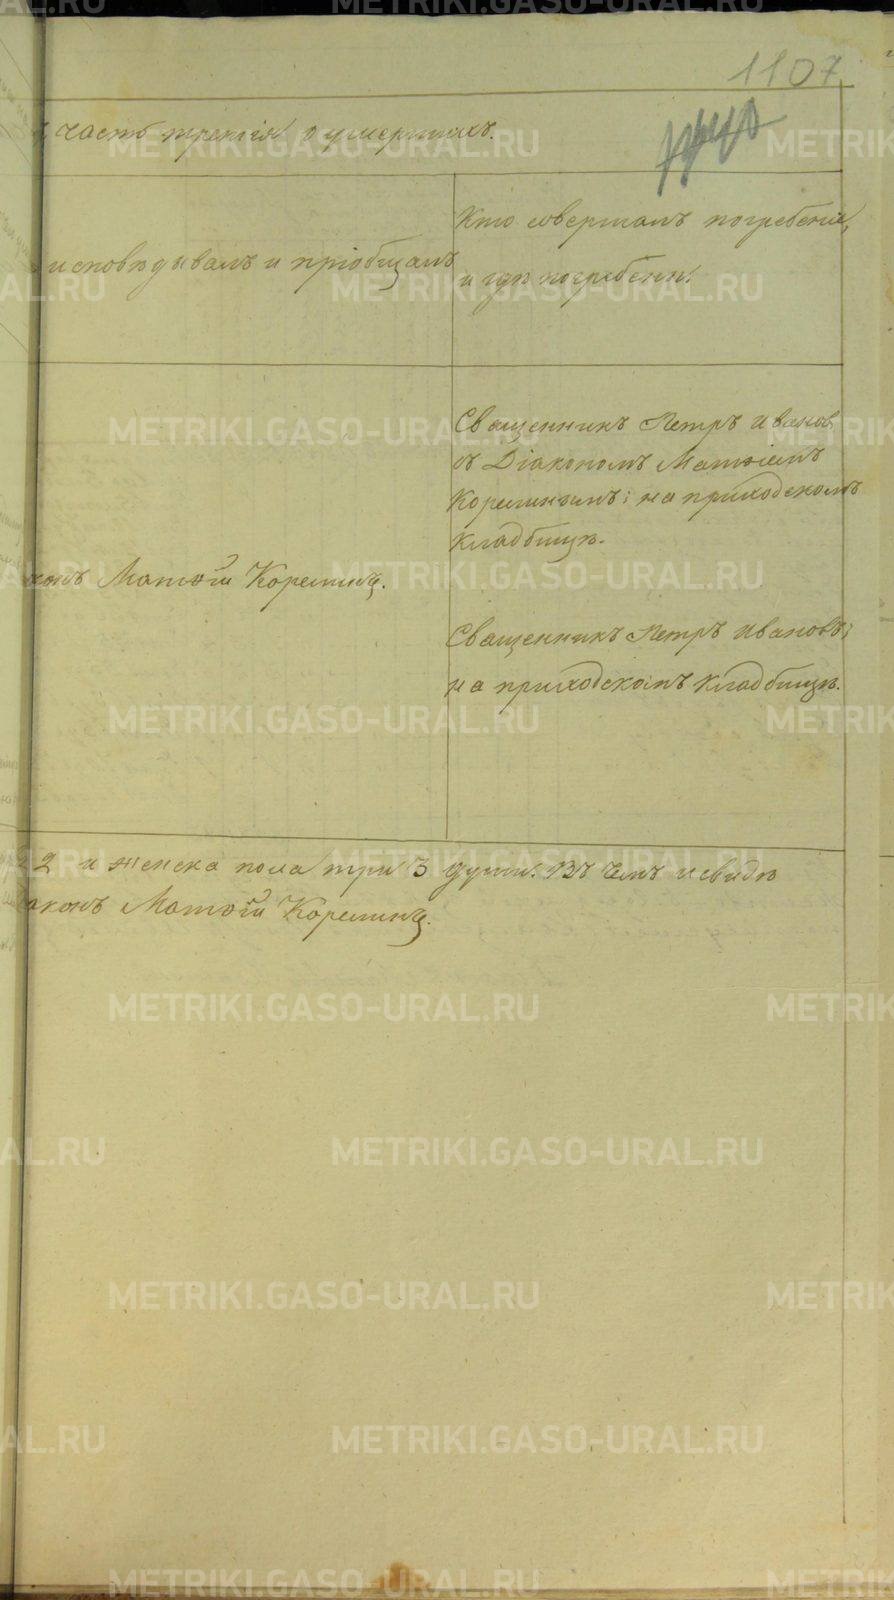 1107
часть третія о умершихъ.
исповѣдывалъ и пріобщалъ
Кто совершалъ погребеніе,
и гдѣ погребены.
Священникъ Петръ Иванов
съ Діакономъ Матѳіемъ
Корелинымъ; на приходскомъ
кладбищѣ.
конъ Матѳій Корелинъ.
Священникъ Петръ Ивановъ;
на приходскомъ кладбищѣ.
2 и женска пола три 3 души. Въ чемъ и свидѣ
аконъ Матѳій Корелинъ.
METRIKI.GASO-URAL.RU